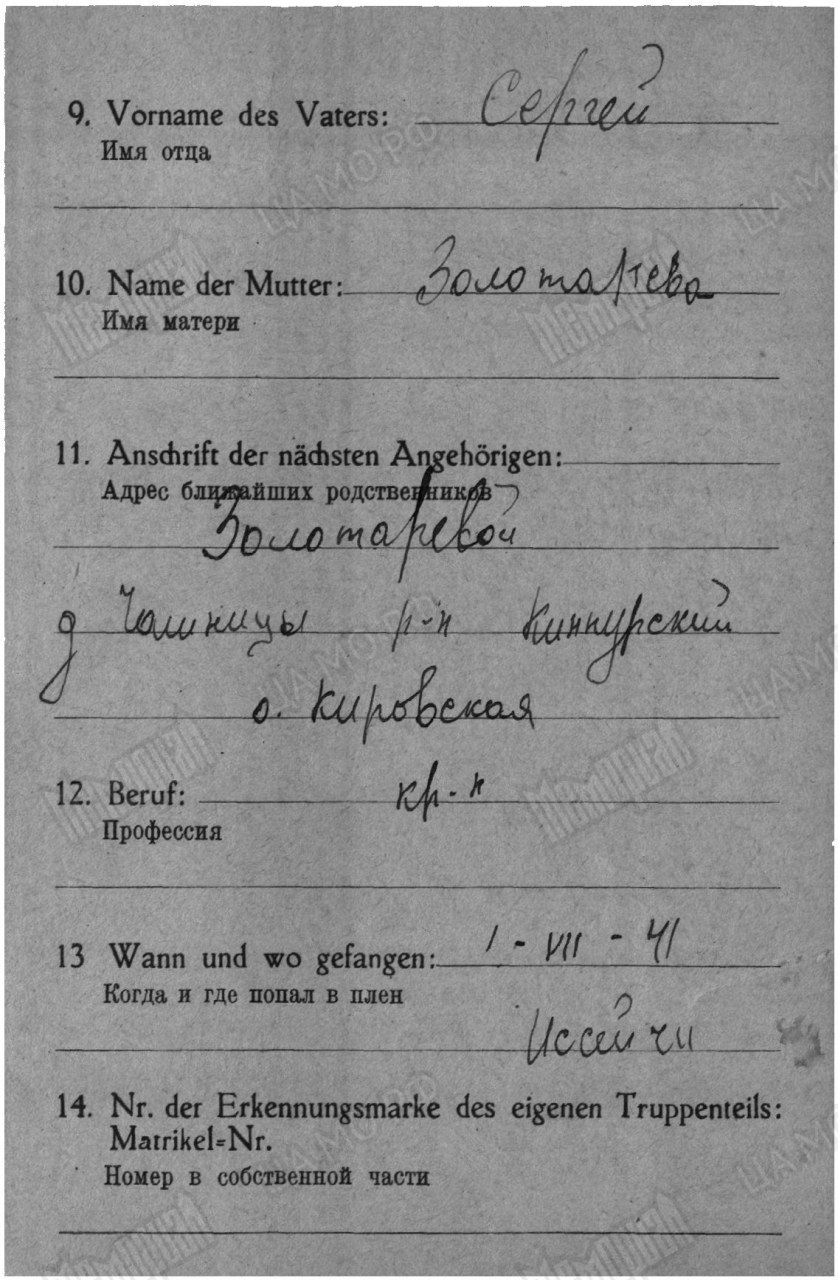 9. Vorname des Vaters: Сергей
Имя отца
10. Name der Mutter: Золотарева
Имя матери
11. Anschrift der nächsten Angehörigen:
Адрес ближайших родственников
Золотаревой
д Чашницы р-н Кикнурский
о. Кировская
12. Beruf: кр-н
Профессия
13 Wann und wo gefangen: 1 - VII - 41
Когда и где попал в плен
14. Nr. der Erkennungsmarke des eigenen Truppenteils:
Matrikel=Nr.
Номер в собственной части
Мемориал
ЦАМО РФ